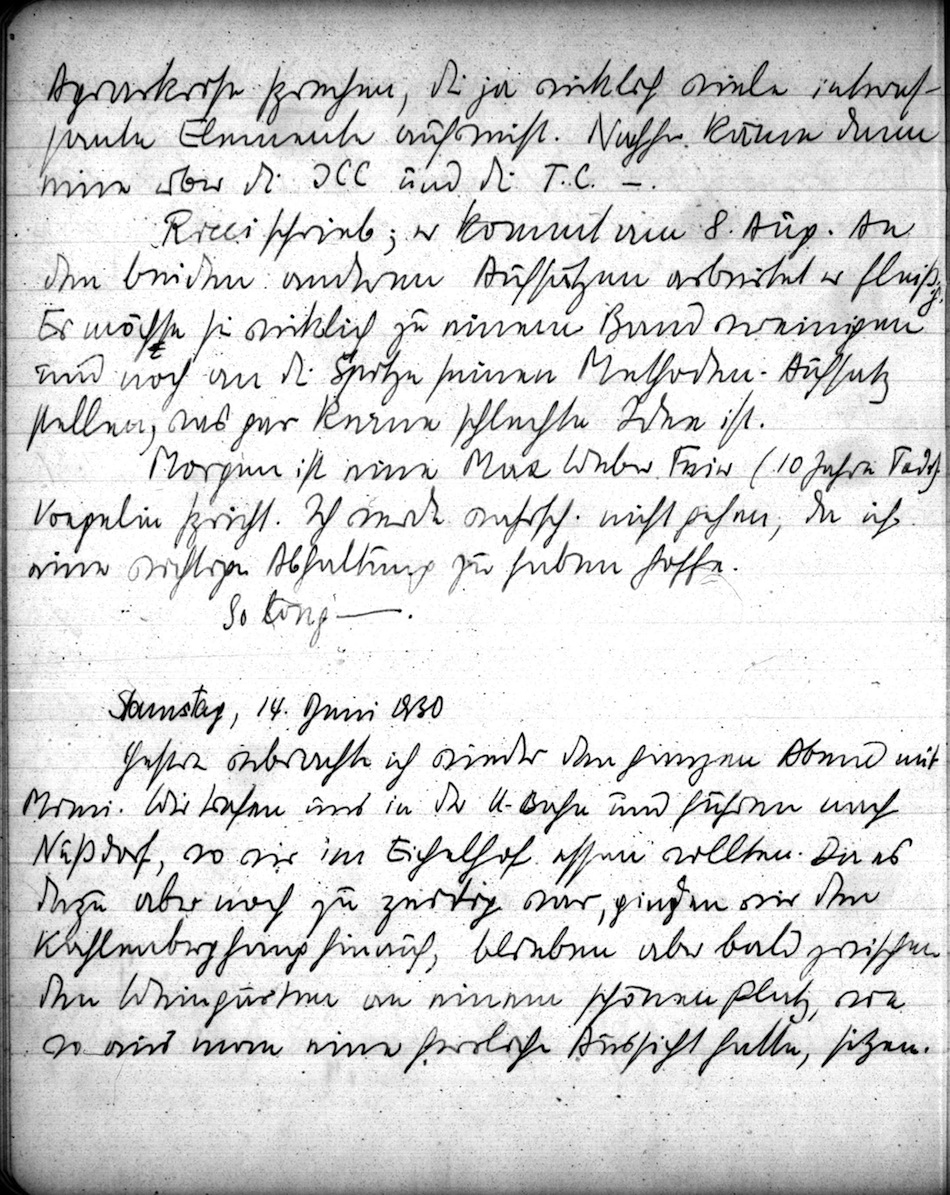 Agrarkrise sprechen, die ja wirklich viele interes-
sante Elemente aufweist. Nachher käme dann
eine über die ICC und die T.C. –.
Ricci schrieb; er kommt am 8. Aug. An
den beiden anderen Aufsätzen arbeitet er fleißig.
Er möchte sie wirklich zu einem Band vereinigen
und noch an die Spitze seinen Methoden-Aufsatz
stellen, was gar keine schlechte Idee ist.
Morgen ist eine Max Weber Feier (10 Jahre Tod)
Voegelin spricht. Ich werde wahrsch. nicht gehen, da ich
eine wichtige Abhaltung zu haben hoffe.
So long —.
Samstag, 14. Juni 1930
Gestern verbrachte ich wieder den ganzen Abend mit
Mimi. Wir trafen uns in der U-Bahn und fuhren nach
Nußdorf, wo wir im Eichelhof essen wollten. Da es
dazu aber noch zu zeitig war, gingen wir den
Kahlenberghang hinauf, blieben aber bald zwischen
den Weingärten an einem schönen Platz, von
wo aus man eine herrliche Aussicht hatte, sitzen.